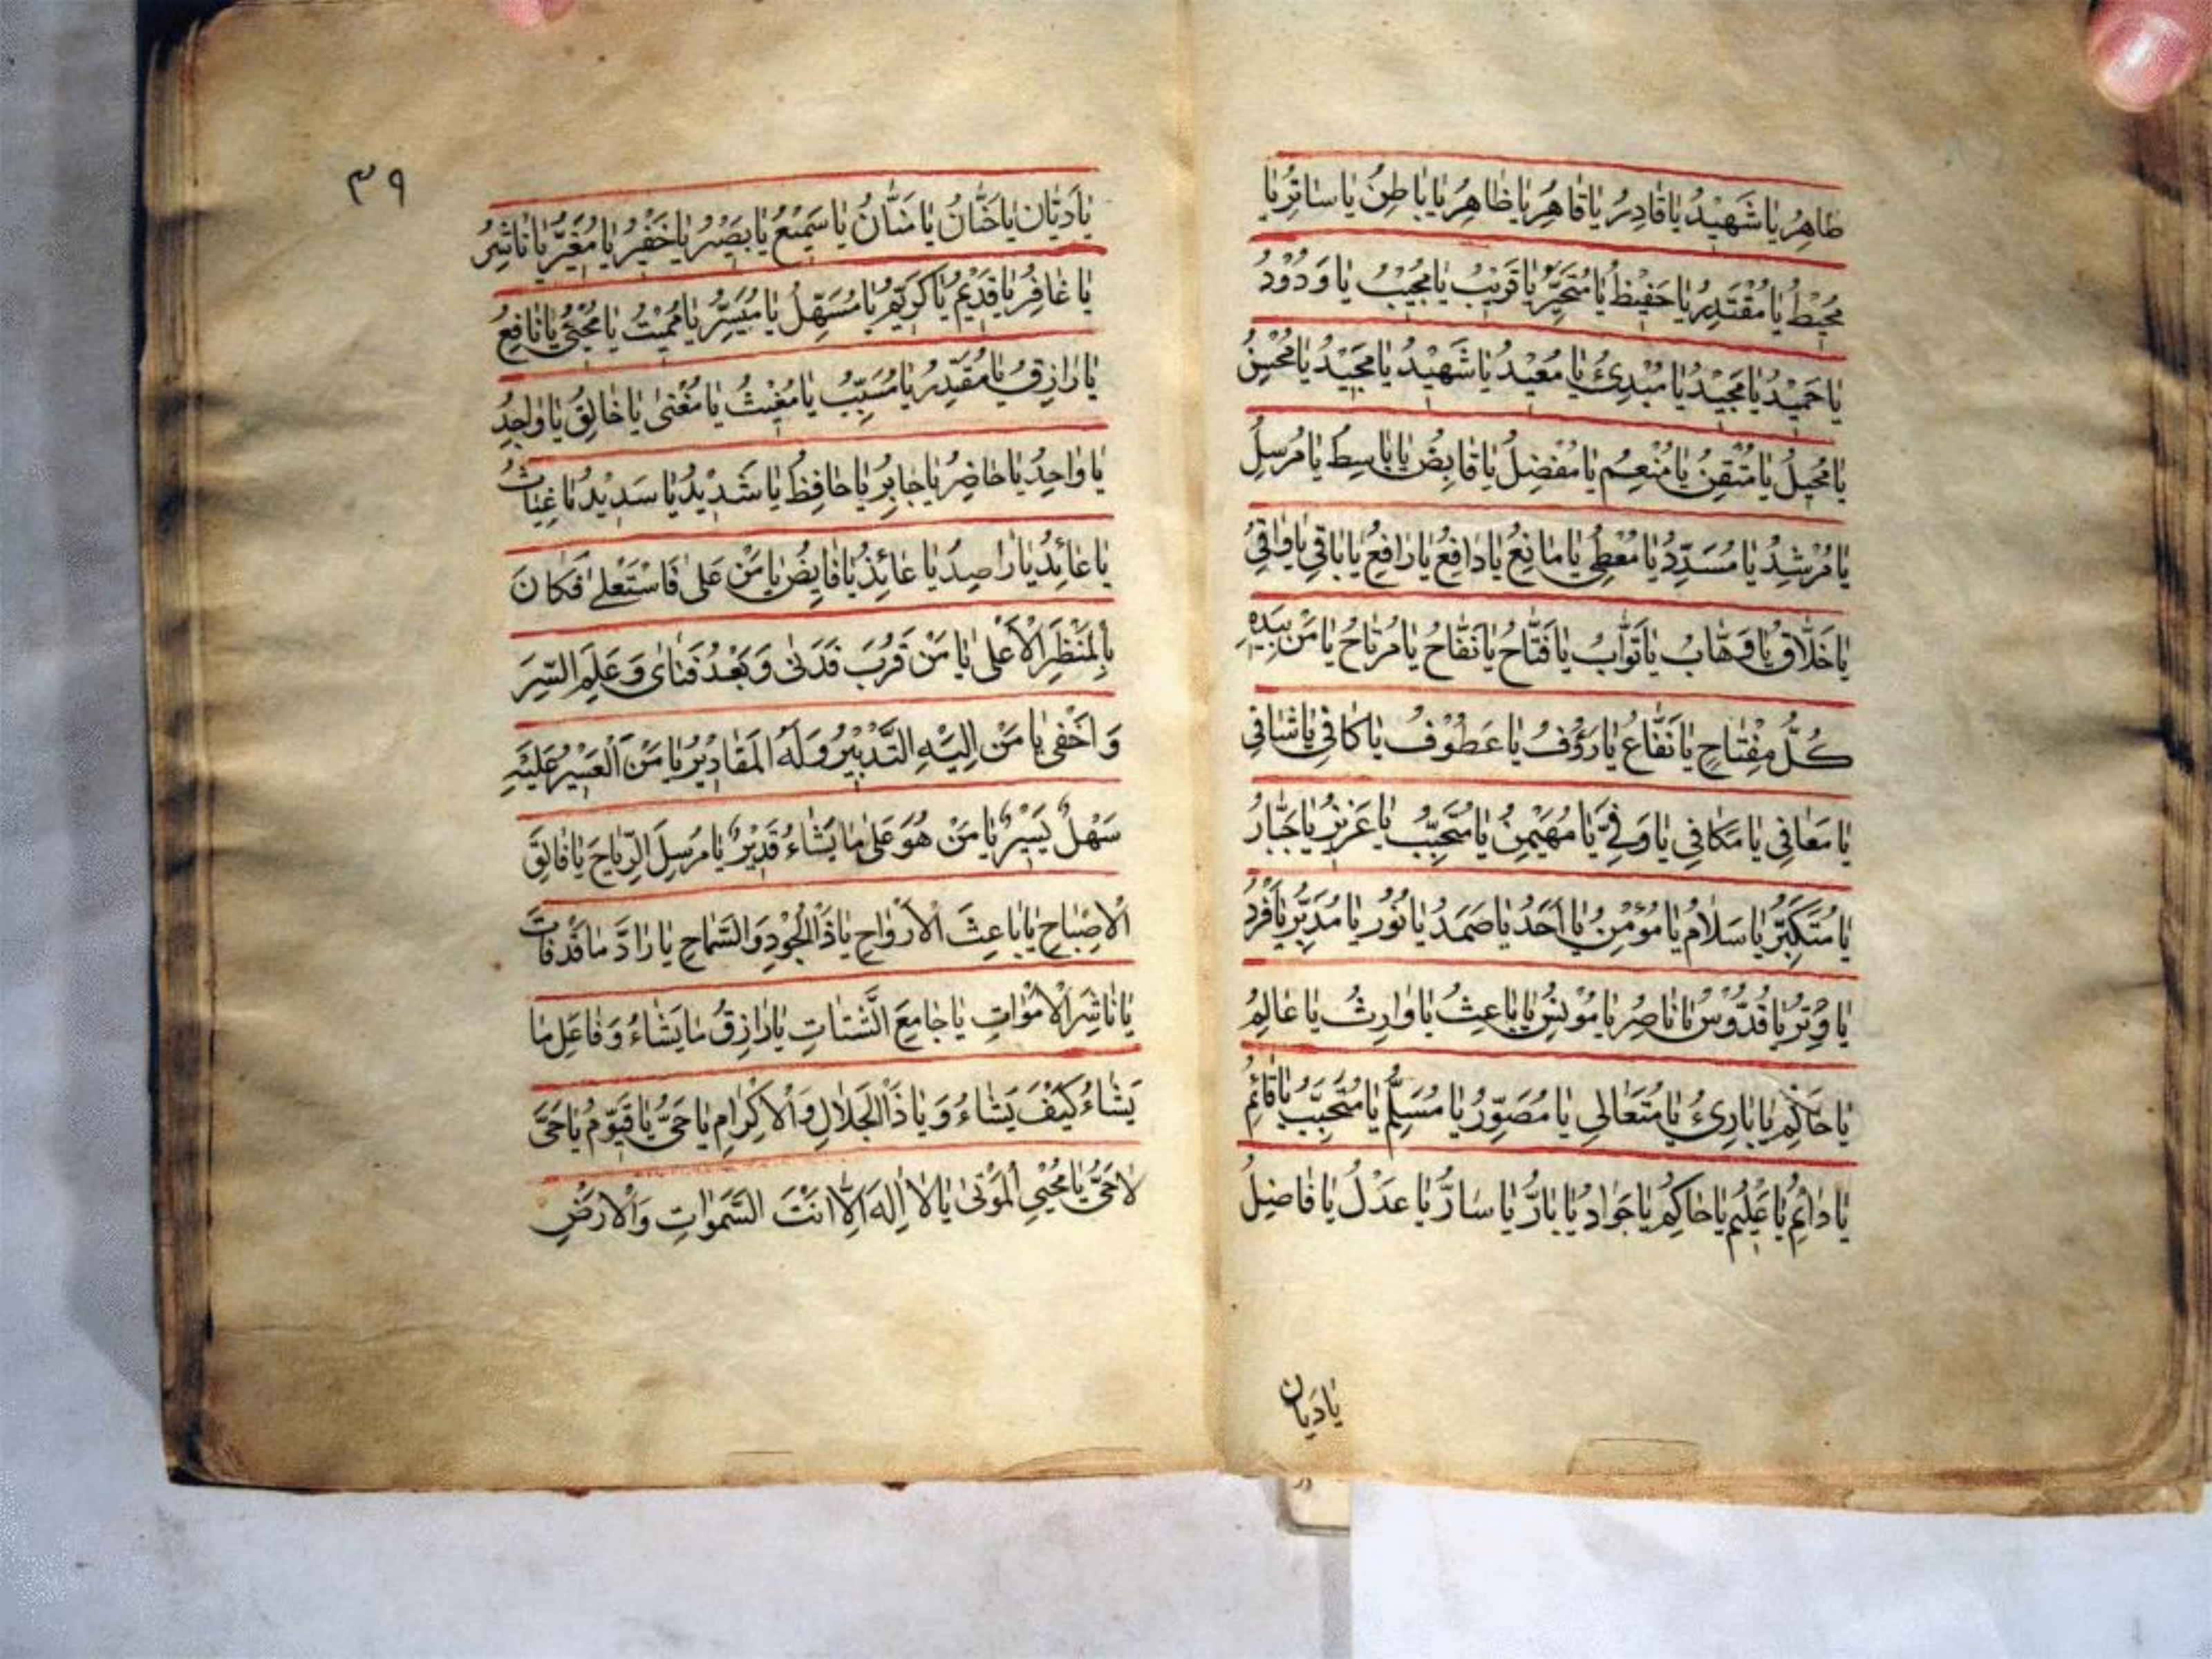 طَاهِرُ يَا شَهِيْدُ يَا قَادِرُ يَا قَاهِرُ يَا ظَاهِرُ يَا بَاطِنُ يَا سَاتِرُ يَا
مُحِيْطُ يَا مُقْتَدِرُ يَا حَفِيْظُ يَا مُتَجَبِّرُ يَا قَرِيْبُ يَا مُجِيْبُ يَا وَدُوْدُ
يَا حَمِيْدُ يَا مَجِيْدُ يَا مُبْدِئُ يَا مُعِيْدُ يَا شَهِيْدُ يَا مَجِيْدُ يَا مُحْسِنُ
يَا مُتْقِنُ يَا مُنْعِمُ يَا مُفْضِلُ يَا قَابِضُ يَا بَاسِطُ يَا مُرْسِلُ
يَا مُرْشِدُ يَا مُسَدِّدُ يَا مُعْطِي يَا مَانِعُ يَا دَافِعُ يَا رَافِعُ يَا بَاقِي يَا وَاقِي
يَا خَلَّاقُ يَا وَهَّابُ يَا تَوَّابُ يَا فَتَّاحُ يَا نَفَّاحُ يَا مُرْتَاحُ يَا مَنْ بِيَدِهِ
كُلُّ مِفْتَاحٍ يَا نَفَّاعُ يَا رَؤُفُ يَا عَطُوْفُ يَا كَافِي يَا شَافِي
يَا مَعَافِي يَا مَكَافِي يَا وَفِيُّ يَا مُهَيْمِنُ يَا عَزِيْزُ يَا جَبَّارُ
يَا مُتَكَبِّرُ يَا سَلَامُ يَا مُؤْمِنُ يَا اَحَدُ يَا صَمَدُ يَا نُوْرُ يَا مُدَبِّرُ يَا فَرْدُ
يَا وِتْرُ يَا قُدُّوْسُ يَا نَاصِرُ يَا مُوْنِسُ يَا بَاعِثُ يَا وَارِثُ يَا عَالِمُ
يَا حَاكِمُ يَا بَارِئُ يَا مُتَعَالِي يَا مُصَوِّرُ يَا مُسَلِّمُ يَا مُتَحَبِّبُ يَا قَائِمُ
يَا دَائِمُ يَا عَلِيْمُ يَا حَاكِمُ يَا جَوَادُ يَا بَارُّ يَا سَارُّ يَا عَدْلُ يَا فَاضِلُ
يَا دَيَان
٣٩
يَا دَيَّان يَا حَنَّانُ يَا مَنَّانُ يَا سَمِيْعُ يَا بَصِيْرُ يَا خَفِيْرُ يَا مُغَيِّرُ يَا نَاشِرُ
يَا غَافِرُ يَا قَدِيْمُ يَا مُسَهِّلُ يَا مُيَسِّرُ يَا مُمِيْتُ يَا مُحْيِي يَا نَافِعُ
يَا رَازِقُ يَا مُقَدِّرُ يَا مُسَبِّبُ يَا مُغِيْثُ يَا مُغْنِى يَا خَالِقُ يَا وَاجِدُ
يَا وَاحِدُ يَا حَاضِرُ يَا جَابِرُ يَا حَافِظُ يَا شَدِيْدُ يَا سَدِيْدُ يَا غِيَاثُ
يَا عَائِدُ يَا رَاصِدُ يَا عَائِذُ يَا قَابِضُ يَا مَنْ عَلىٰ فَاسْتَعْلىٰ فَكَانَ
بِالْمَنْظَرِ الْاَعْلىٰ يَا مَنْ قَرُبَ فَدَنىٰ وَ بَعُدَ فَنَاىٰ وَ عَلِمَ السِّرَ
وَ اَخْفى يَا مَنْ اِلَيْهِ التَّدْبِيْرُ وَ لَهُ الْمَقَادِيْرُ يَا مَنْ الْعَسِيْرُ عَلَيْهِ
سَهْلٌ يَسِيْرٌ يَا مَنْ هُوَ عَلىٰ مَا يَشَاءُ قَدِيْرٌ يَا مُرْسِلَ الرِّيَاحِ يَا فَالِقَ
الْاِصْبَاحِ يَا بَاعِثَ الْاَرْوَاحِ يَا ذَا الْجُوْدِ وَالسَّمَاحِ يَا رَادَّ مَا قَدْ فَاتَ
يَا نَاشِرَ الْاَمْوَاتِ يَا جَامِعَ الشَّتَاتِ يَا رَازِقُ مَا يَشَاءُ وَ فَاعِلَ مَا
يَشَاءُ كَيْفَ يَشَاءُ وَ يَا ذَا الْجَلَالِ وَ الْاِكْرَامِ يَا حَىُّ يَا قَيُّوْمُ يَا حَىَّ
لَا حَىَّ يَا مُحْيِي الْمَوْتىٰ يَا لَا اِلٰهَ اِلَّا اَنْتَ السَّمٰوَاتِ وَالْاَرْضِ